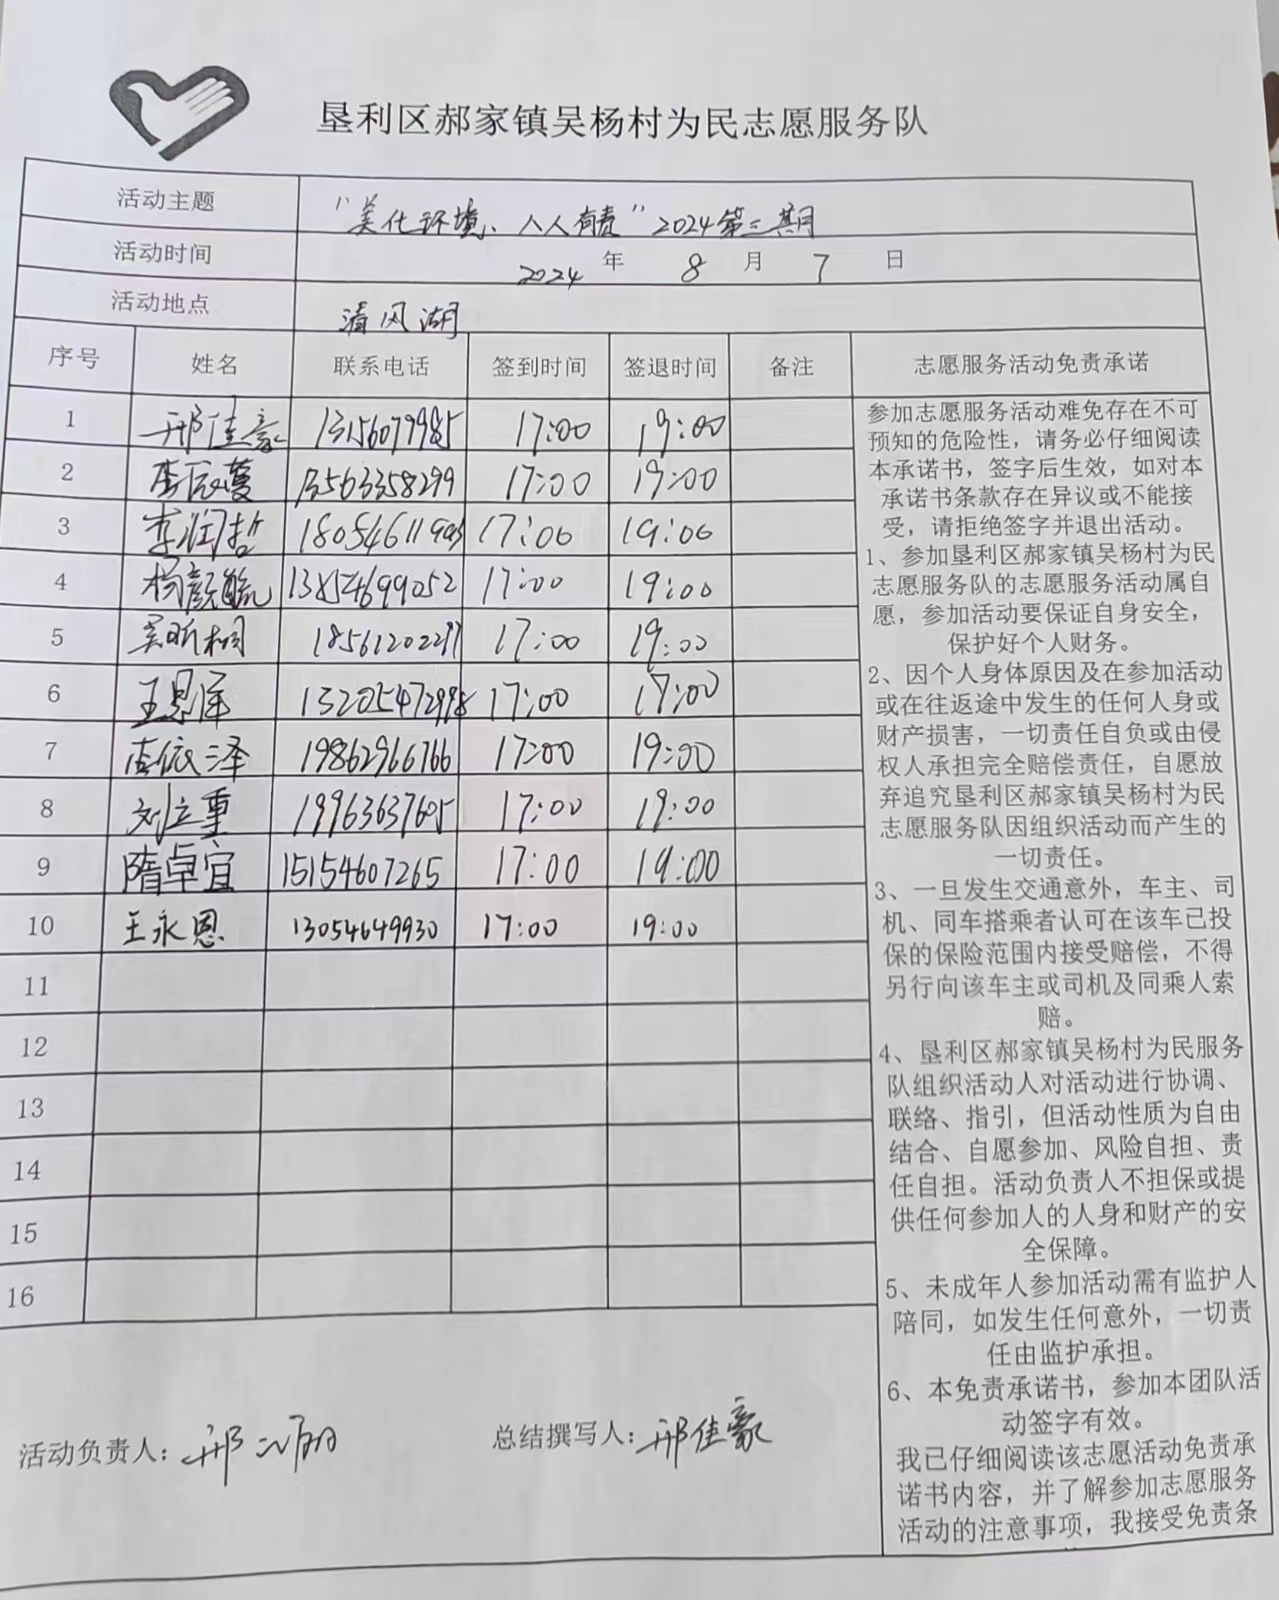 垦利区郝家镇吴杨村为民志愿服务队
活动主题 “美化环境、人人有责”2024第三期
活动时间 2024 年 8 月 7 日
活动地点 清风湖
序号 姓名 联系电话 签到时间 签退时间 备注 志愿服务活动免责承诺
1 邢佳豪 13156079985 17:00 19:00
2 李辰蔓 13563358299 17:00 19:00
3 李润哲 17:00 19:00
4 杨颜毓 13854699052 17:00 19:00
5 吴昕桐 18561202297 17:00 19:00
6 王昱泽 13205472998 17:00 19:00
7 李依泽 19862966766 17:00 19:00
8 刘立重 19963637605 17:00 19:00
9 隋卓宜 15154607265 17:00 19:00
10 王永恩 13054649930 17:00 19:00
11
12
13
14
15
16
参加志愿服务活动难免存在不可
预知的危险性，请务必仔细阅读
本承诺书，签字后生效，如对本
承诺书条款存在异议或不能接
受，请拒绝签字并退出活动。
1、参加垦利区郝家镇吴杨村为民
志愿服务队的志愿服务活动属自
愿，参加活动要保证自身安全，
保护好个人财务。
2、因个人身体原因及在参加活动
或在往返途中发生的任何人身或
财产损害，一切责任自负或由侵
权人承担完全赔偿责任，自愿放
弃追究垦利区郝家镇吴杨村为民
志愿服务队因组织活动而产生的
一切责任。
3、一旦发生交通意外，车主、司
机、同车搭乘者认可在该车已投
保的保险范围内接受赔偿，不得
另行向该车主或司机及同乘人索
赔。
4、垦利区郝家镇吴杨村为民服务
队组织活动人对活动进行协调、
联络、指引，但活动性质为自由
结合、自愿参加、风险自担、责
任自担。活动负责人不担保或提
供任何参加人的人身和财产的安
全保障。
5、未成年人参加活动需有监护人
陪同，如发生任何意外，一切责
任由监护承担。
6、本免责承诺书，参加本团队活
动签字有效。
我已仔细阅读该志愿活动免责承
诺书内容，并了解参加志愿服务
活动的注意事项，我接受免责条
活动负责人： 总结撰写人：邢佳豪